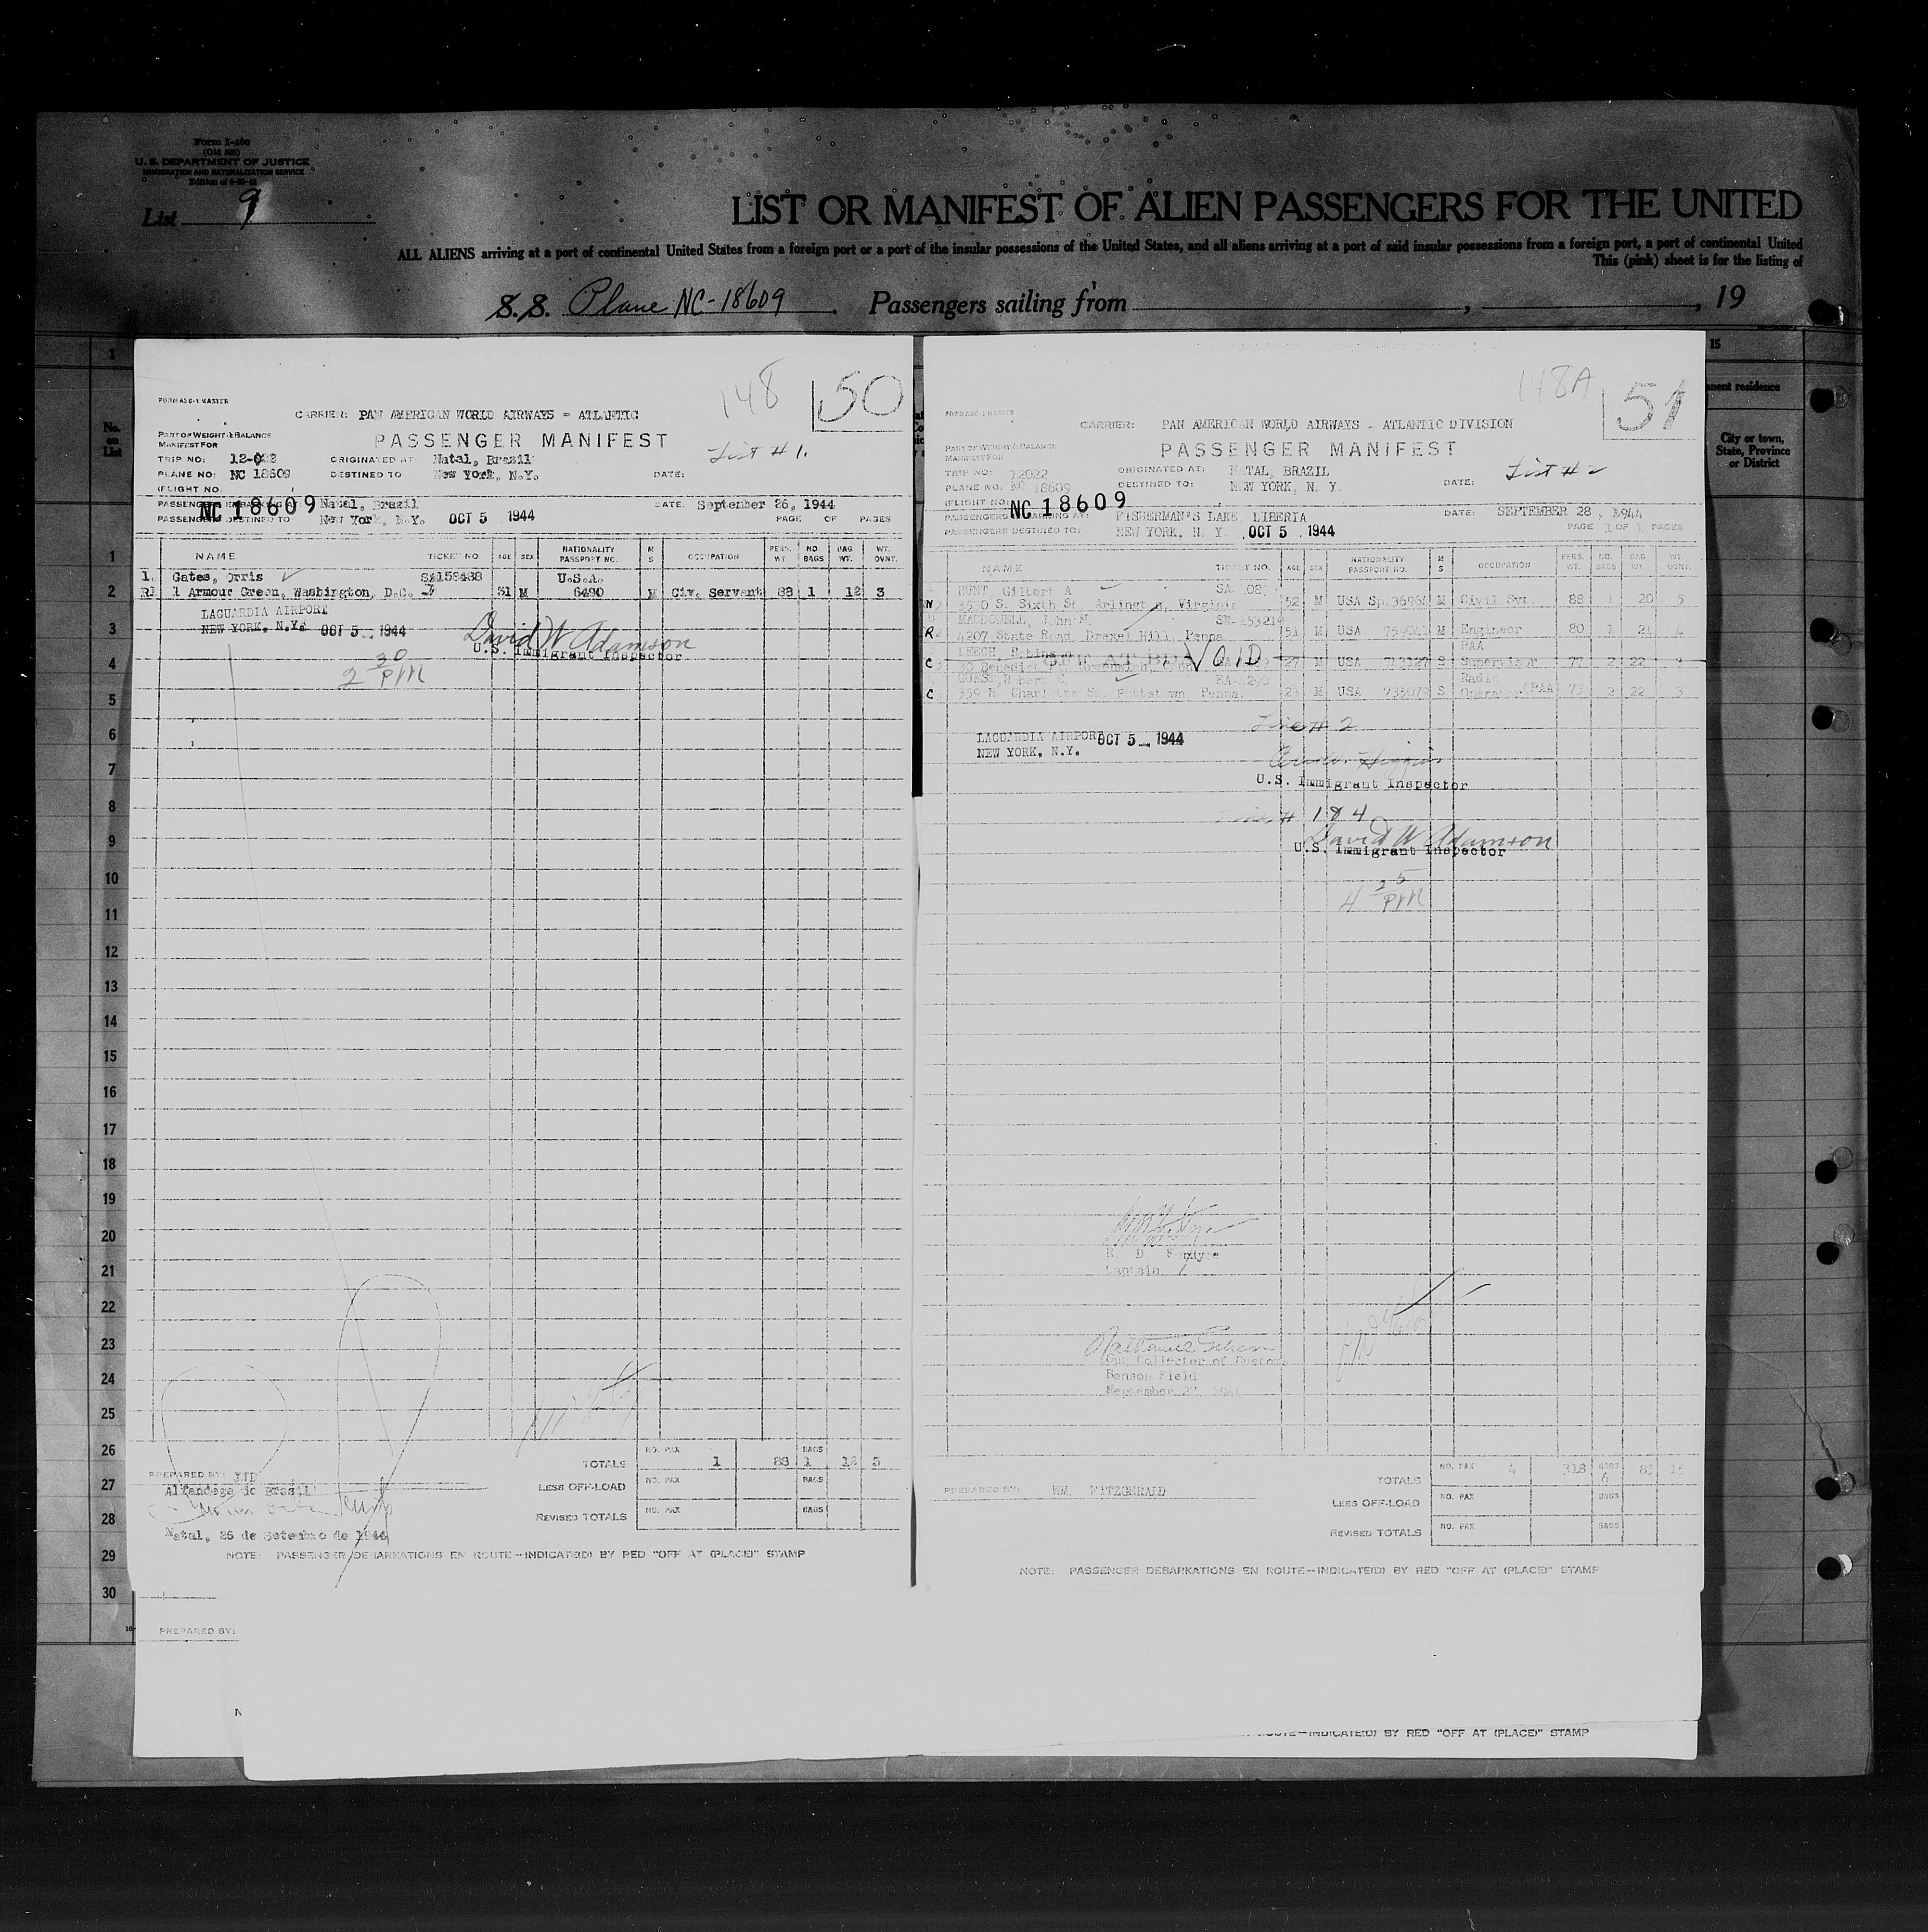 Form I-400
(Old 500)
U. S. DEPARTMENT OF JUSTICE
IMMIGRATION AND NATURALIZATION SERVICE
List 9
LIST OR MANIFEST OF ALIEN PASSENGERS FOR THE UNITED
ALL ALIENS arriving at a port of continental United States from a foreign port or a port of the insular possessions of the United States, and all aliens arriving at a port of said insular possessions from a foreign port, a port of continental United
This (pink) sheet is for the listing of
S.S. Plane NC-18609 . Passengers sailing from , , 19
148 50
FORM ASC-1 MASTER
CARRIER: PAN AMERICAN WORLD AIRWAYS - ATLANTIC
PART OF WEIGHT & BALANCE
MANIFEST FOR
PASSENGER MANIFEST
List # 1.
TRIP NO: 12-022 ORIGINATED AT: Natal, Brazil
PLANE NO: NC 18609 DESTINED TO: New York, N.Y. DATE:
(FLIGHT NO.
NC 18609
PASSENGERS EMBARKING AT: Natal, Brazil DATE: September 26, 1944
PASSENGERS DESTINED TO New York, N.Y. OCT 5 1944 PAGE OF PAGES
NAME TICKET NO. AGE SEX NATIONALITY PASSPORT NO. M S OCCUPATION PERS. WT. NO BAGS BAG WT. WT. OVNT.
1. Gates, Orris SA158488 U.S.A.
R1 1 Armour Green, Washington, D.C. 51 M 6490 M Civ. Servant 88 1 12 3
LAGUARDIA AIRPORT
NEW YORK, N.Y. OCT 5 1944
David W Adamson
U.S. Immigrant Inspector
2 30 PM
TOTALS NO. PAX 1 88 BAGS 1 12 3
LESS OFF-LOAD NO. PAX BAGS
REVISED TOTALS NO. PAX BAGS
PREPARED BY:
Alfandega do Brasil
Natal, 26 de Setembro de 1944
NOTE: PASSENGER DEBARKATIONS EN ROUTE—INDICATE(D) BY RED "OFF AT (PLACE)" STAMP
PREPARED BY:
148A 51
FORM ASC-1 MASTER
CARRIER: PAN AMERICAN WORLD AIRWAYS - ATLANTIC DIVISION
PART OF WEIGHT & BALANCE
MANIFEST FOR
PASSENGER MANIFEST
List # 2
TRIP NO: 12022 ORIGINATED AT: NATAL, BRAZIL
PLANE NO: NC 18609 DESTINED TO: NEW YORK, N. Y. DATE:
(FLIGHT NO.
NC 18609
PASSENGERS EMBARKING AT: FISHERMAN'S LAKE, LIBERIA DATE: SEPTEMBER 28, 1944
PASSENGERS DESTINED TO: NEW YORK, N. Y. OCT 5 1944 PAGE 1 OF 1 PAGES
NAME TICKET NO. AGE SEX NATIONALITY PASSPORT NO. M S OCCUPATION PERS. WT. NO. BAGS BAG WT. WT. OVNT.
HUNT Gilbert A
3530 S. Sixth St. Arlington, Virginia 52 M USA M Civil Svt 88 1 20 5
MACDOWELL, John M.
4207 State Road, Drexel Hill, Penna 51 M USA M Engineer 80 1 21
LEECH, Robins
VOID 27 M USA S PAA Supervisor 77 2 22
Robert
359 N Charlotte St. Pottstown, Penna. 23 M USA 735079 S Radio Operator (PAA) 73 2 22 3
LAGUARDIA AIRPORT
NEW YORK, N.Y. OCT 5 1944
Line # 2
U.S. Immigrant Inspector
Lines # 1 & 4
David W Adamson
U.S. Immigrant Inspector
4 25 PM
Captain
Collector of Customs
Benson Field
TOTALS NO. PAX 4 318 BAGS 6 85 15
LESS OFF-LOAD NO. PAX BAGS
REVISED TOTALS NO. PAX BAGS
PREPARED BY: WM. FITZGERALD
NOTE: PASSENGER DEBARKATIONS EN ROUTE—INDICATE(D) BY RED "OFF AT (PLACE)" STAMP
ROUTE—INDICATE(D) BY RED "OFF AT (PLACE)" STAMP
No. on List
1
1
2
3
4
5
6
7
8
9
10
11
12
13
14
15
16
17
18
19
20
21
22
23
24
25
26
27
28
29
30
15
City or town, State, Province or District